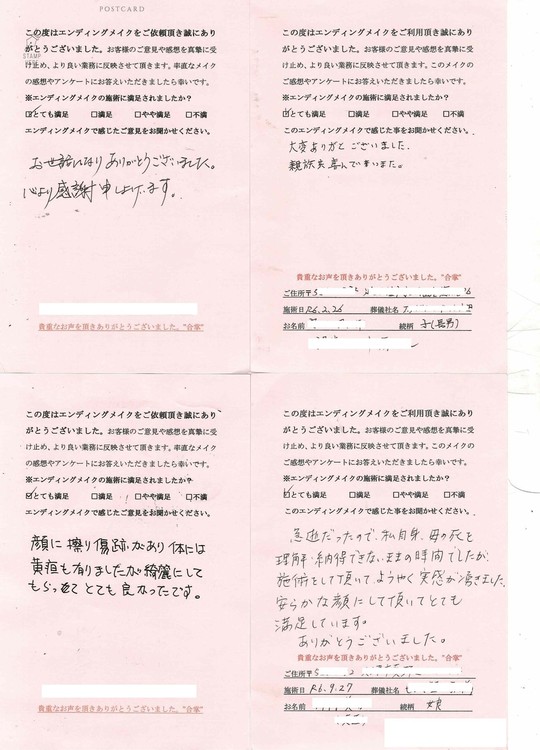 POSTCARD
STAMP
この度はエンディングメイクをご依頼頂き誠にあり
がとうございました。お客様のご意見や感想を真摯に受
け止め、より良い業務に反映させて頂きます。率直なメイク
の感想やアンケートにお答えいただきましたら幸いです。
※エンディングメイクの施術に満足されましたか？
☑とても満足 □満足 □やや満足 □不満
エンディングメイクで感じたご意見をお聞かせください。
お世話になりありがとうございました。
心より感謝申し上げます。
貴重なお声を頂きありがとうございました。"合家"
この度はエンディングメイクをご利用頂き誠にあり
がとうございました。お客様のご意見や感想を真摯に受
け止め、より良い業務に反映させて頂きます。このメイク
のご感想やアンケートにお答えいただきましたら幸いです。
※エンディングメイクの施術に満足されましたか？
☑とても満足 □満足 □やや満足 □不満
このエンディングメイクで感じた事をお聞かせください。
大変ありがとうございました。
親族共喜んでいました。
貴重なお声を頂きありがとうございました。"合家"
ご住所〒
施術日 R6.2.26 葬儀社名
お名前 続柄 子(長男)
この度はエンディングメイクをご依頼頂き誠にあり
がとうございました。お客様のご意見や感想を真摯に受
け止め、より良い業務に反映させて頂きます。率直なメイク
の感想やアンケートにお答えいただきましたら幸いです。
※エンディングメイクの施術に満足されましたか？
☑とても満足 □満足 □やや満足 □不満
エンディングメイクで感じたご意見をお聞かせください。
顔に擦り傷跡があり体には
黄疸も有りましたが綺麗にして
もらってとても良かったです。
貴重なお声を頂きありがとうございました。"合家"
この度はエンディングメイクをご利用頂き誠にあり
がとうございました。お客様のご意見や感想を真摯に受
け止め、より良い業務に反映させて頂きます。このメイク
のご感想やアンケートにお答えいただきましたら幸いです。
※エンディングメイクの施術に満足されましたか？
☑とても満足 □満足 □やや満足 □不満
このエンディングメイクで感じた事をお聞かせください。
急逝だったので、私自身、母の死を
理解・納得できないままの時間でしたが、
施術をして頂いて、ようやく実感が湧きました。
安らかな顔にして頂いてとても
満足しています。
ありがとうございました。
貴重なお声を頂きありがとうございました。"合家"
ご住所〒
施術日 R6.9.27 葬儀社名
お名前 続柄 娘